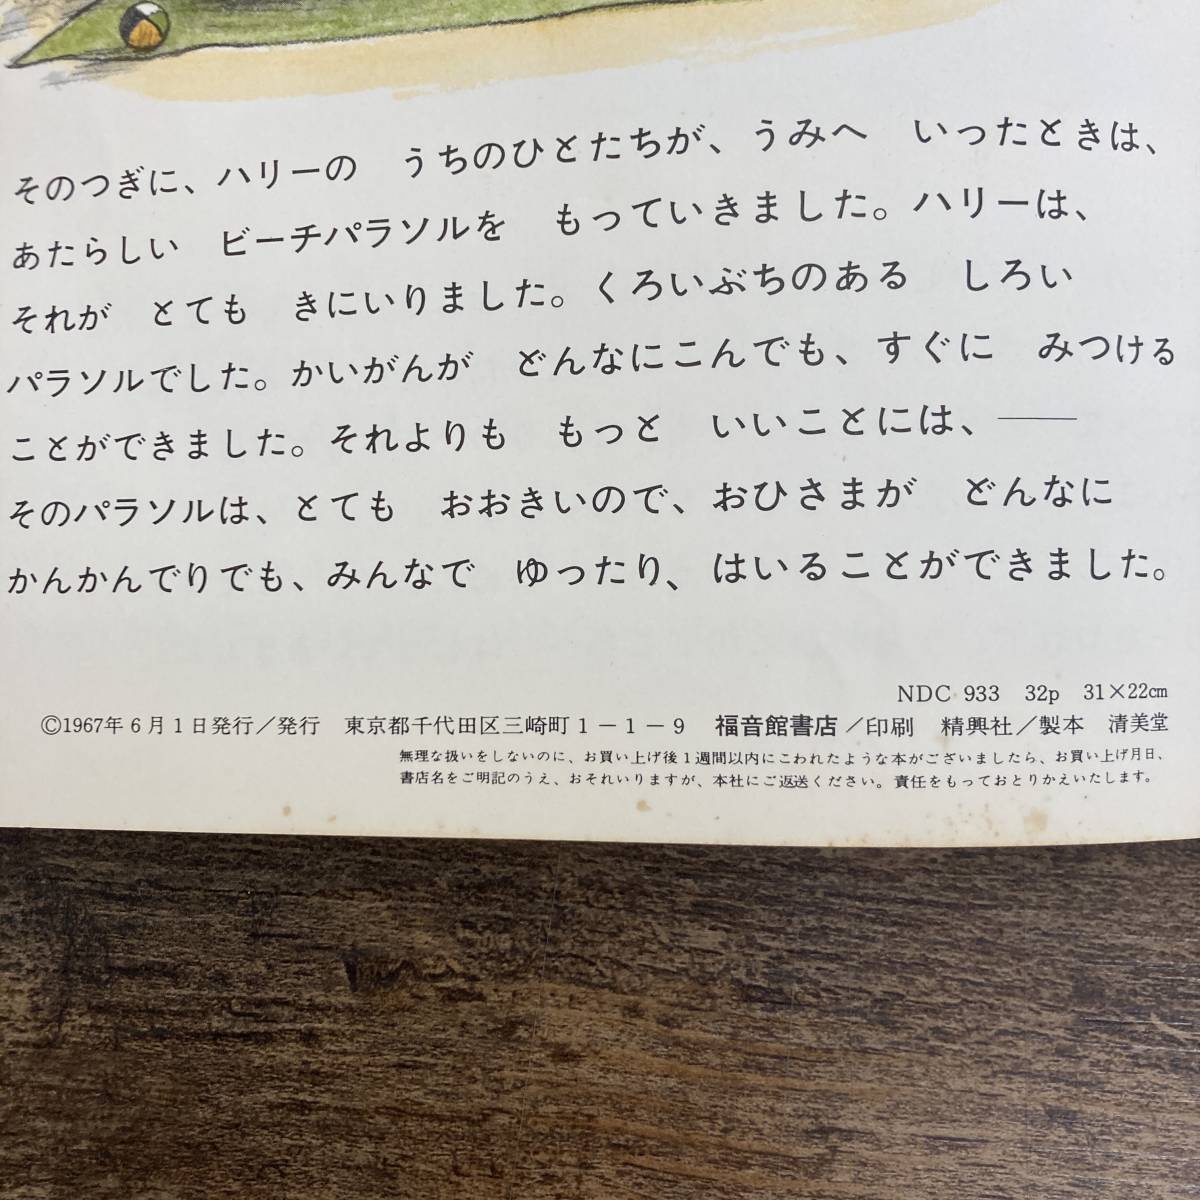 そのつぎに、ハリーの　うちのひとたちが、うみへ　いったときは、
あたらしい　ビーチパラソルを　もっていきました。ハリーは、
それが　とても　きにいりました。くろいぶちのある　しろい
パラソルでした。かいがんが　どんなにこんでも、すぐに　みつける
ことができました。それよりも　もっと　いいことには、――
そのパラソルは、とても　おおきいので、おひさまが　どんなに
かんかんでりでも、みんなで　ゆったり、はいることができました。
NDC 933　32p　31×22cm
©1967年6月1日発行／発行　東京都千代田区三崎町1－1－9　福音館書店／印刷　精興社／製本　清美堂
無理な扱いをしないのに、お買い上げ後1週間以内にこわれたような本がございましたら、お買い上げ月日、
書店名をご明記のうえ、おそれいりますが、本社にご返送ください。責任をもっておとりかえいたします。